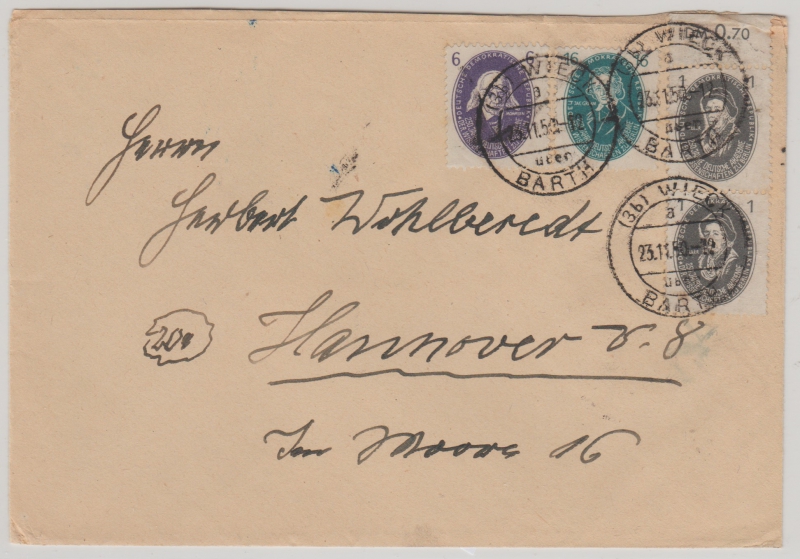 DM 0.70
6
16
1
1
(3b) WIECK
a
23.11.50.-12
über
BARTH
(3b) WIECK
a
23.11.50.-12
über
BARTH
(3b) WIECK
a
23.11.50.-12
über
BARTH
Herrn
Herbert Wohlberedt
20a
Hannover N. 8
Im Moore 16